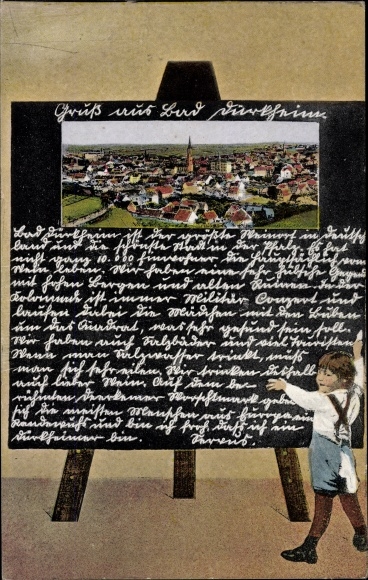 Gruß aus Bad Dürkheim.
Bad Dürkheim ist der größte Weinort in Deutsch
land und die schönste Stadt in der Pfalz. Es hat
nicht ganz 10.000 Einwohner die hauptsächlich vom
Wein leben. Wir haben eine sehr hübsche Gegend
mit hohen Bergen und alten Ruinen. In der
Kolonnade ist immer Militär Conzert und
laufen dabei die Mädchen mit den Buben
um das Quadrat, was sehr gesund sein soll.
Wir haben auch Salzbäder und viel Touristen
Wenn man Salzwasser trinkt, muß
man sich sehr eilen. Wir trinken deshalb
auch lieber Wein. Auf dem be-
rühmten Derkemer Worschtmark geben
sich die meisten Menschen aus Europa ein
Randewuhs und bin ich froh, daß ich ein
Dürkheimer bin. Servus.